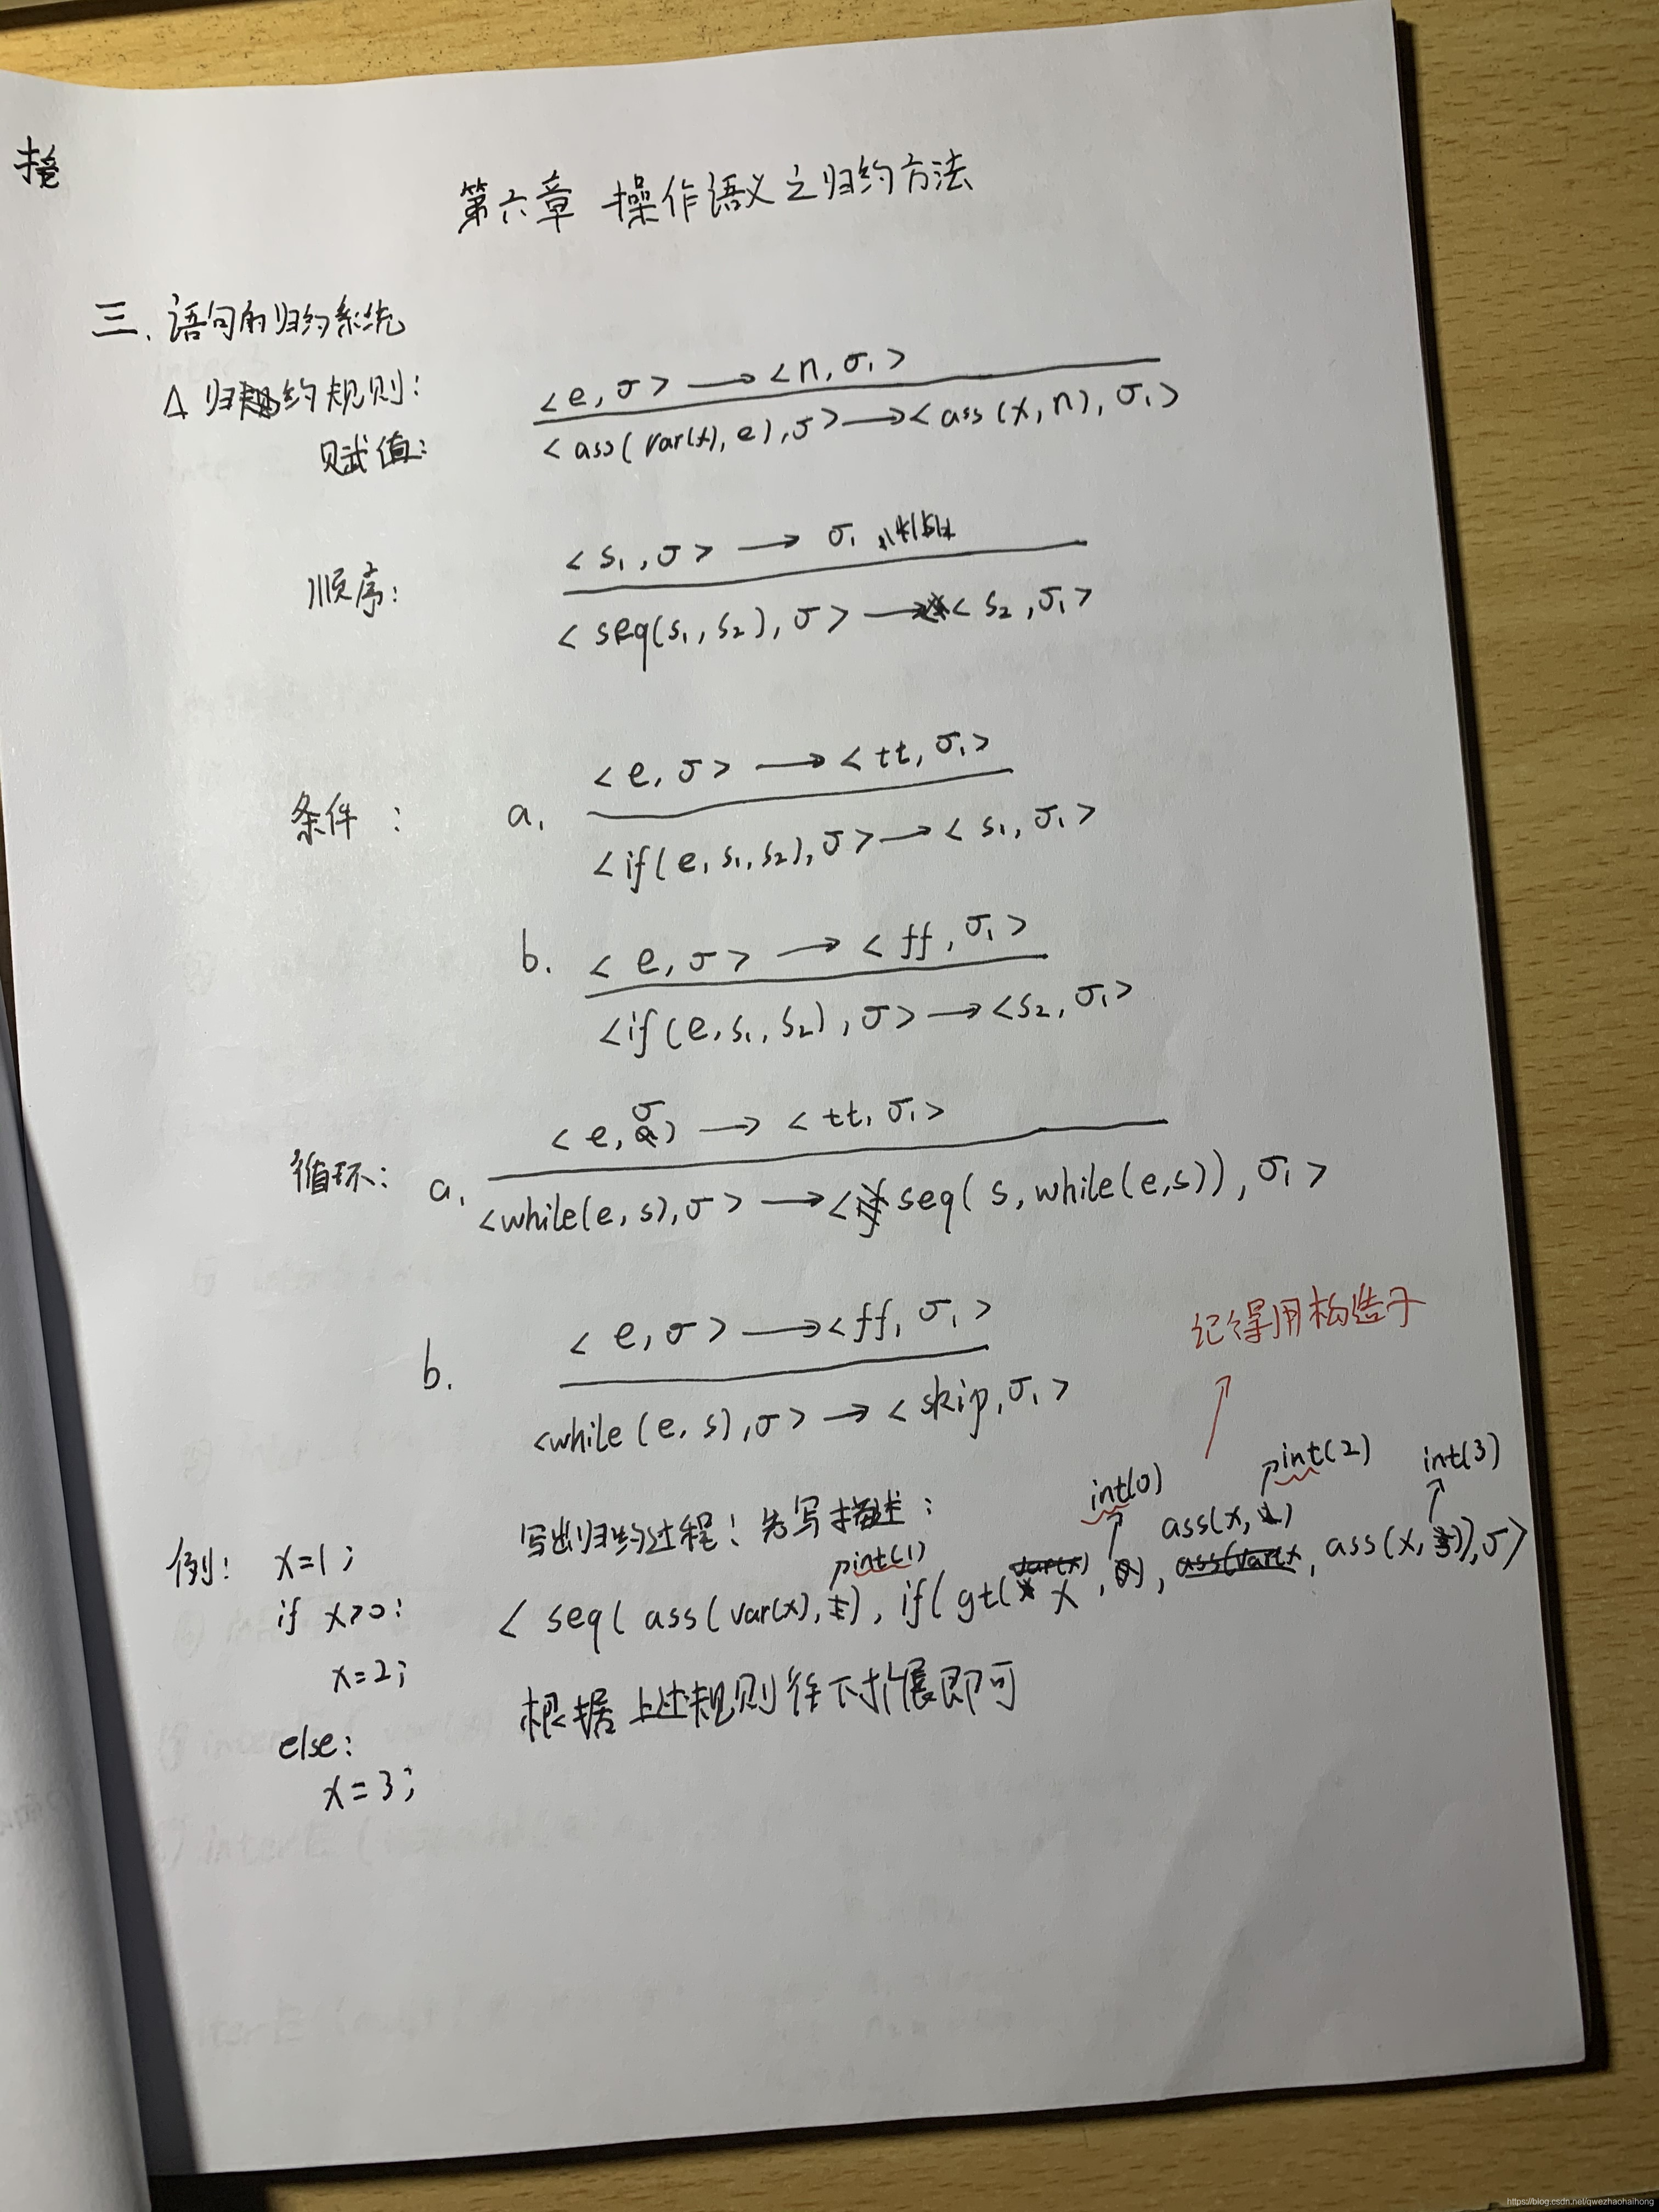 第六章 操作语义之归约方法
三、语句的归约系统
△ 归约规则:
赋值:
<e, σ> → <n, σ₁>
<ass(var(x), e), σ> → <ass(x, n), σ₁>
顺序:
<s₁, σ> → σ₁
<seq(s₁, s₂), σ> → <s₂, σ₁>
条件:
a. <e, σ> → <tt, σ₁>
<if(e, s₁, s₂), σ> → <s₁, σ₁>
b. <e, σ> → <ff, σ₁>
<if(e, s₁, s₂), σ> → <s₂, σ₁>
循环: a. <e, σ) → <tt, σ₁>
<while(e, s), σ> → <seq(s, while(e,s)), σ₁>
b. <e, σ> → <ff, σ₁>
<while(e, s), σ> → <skip, σ₁>
记得用构造子
例: x=1;
if x>0:
x=2;
else:
x=3;
写出归约过程! 先写描述:
int(1) int(0) int(2) int(3)
< seq( ass( var(x), 1), if( gt( x, 0), ass(x, 2), ass(x, 3)), σ>
根据上述规则往下扩展即可
https://blog.csdn.net/qwezhaohaihong